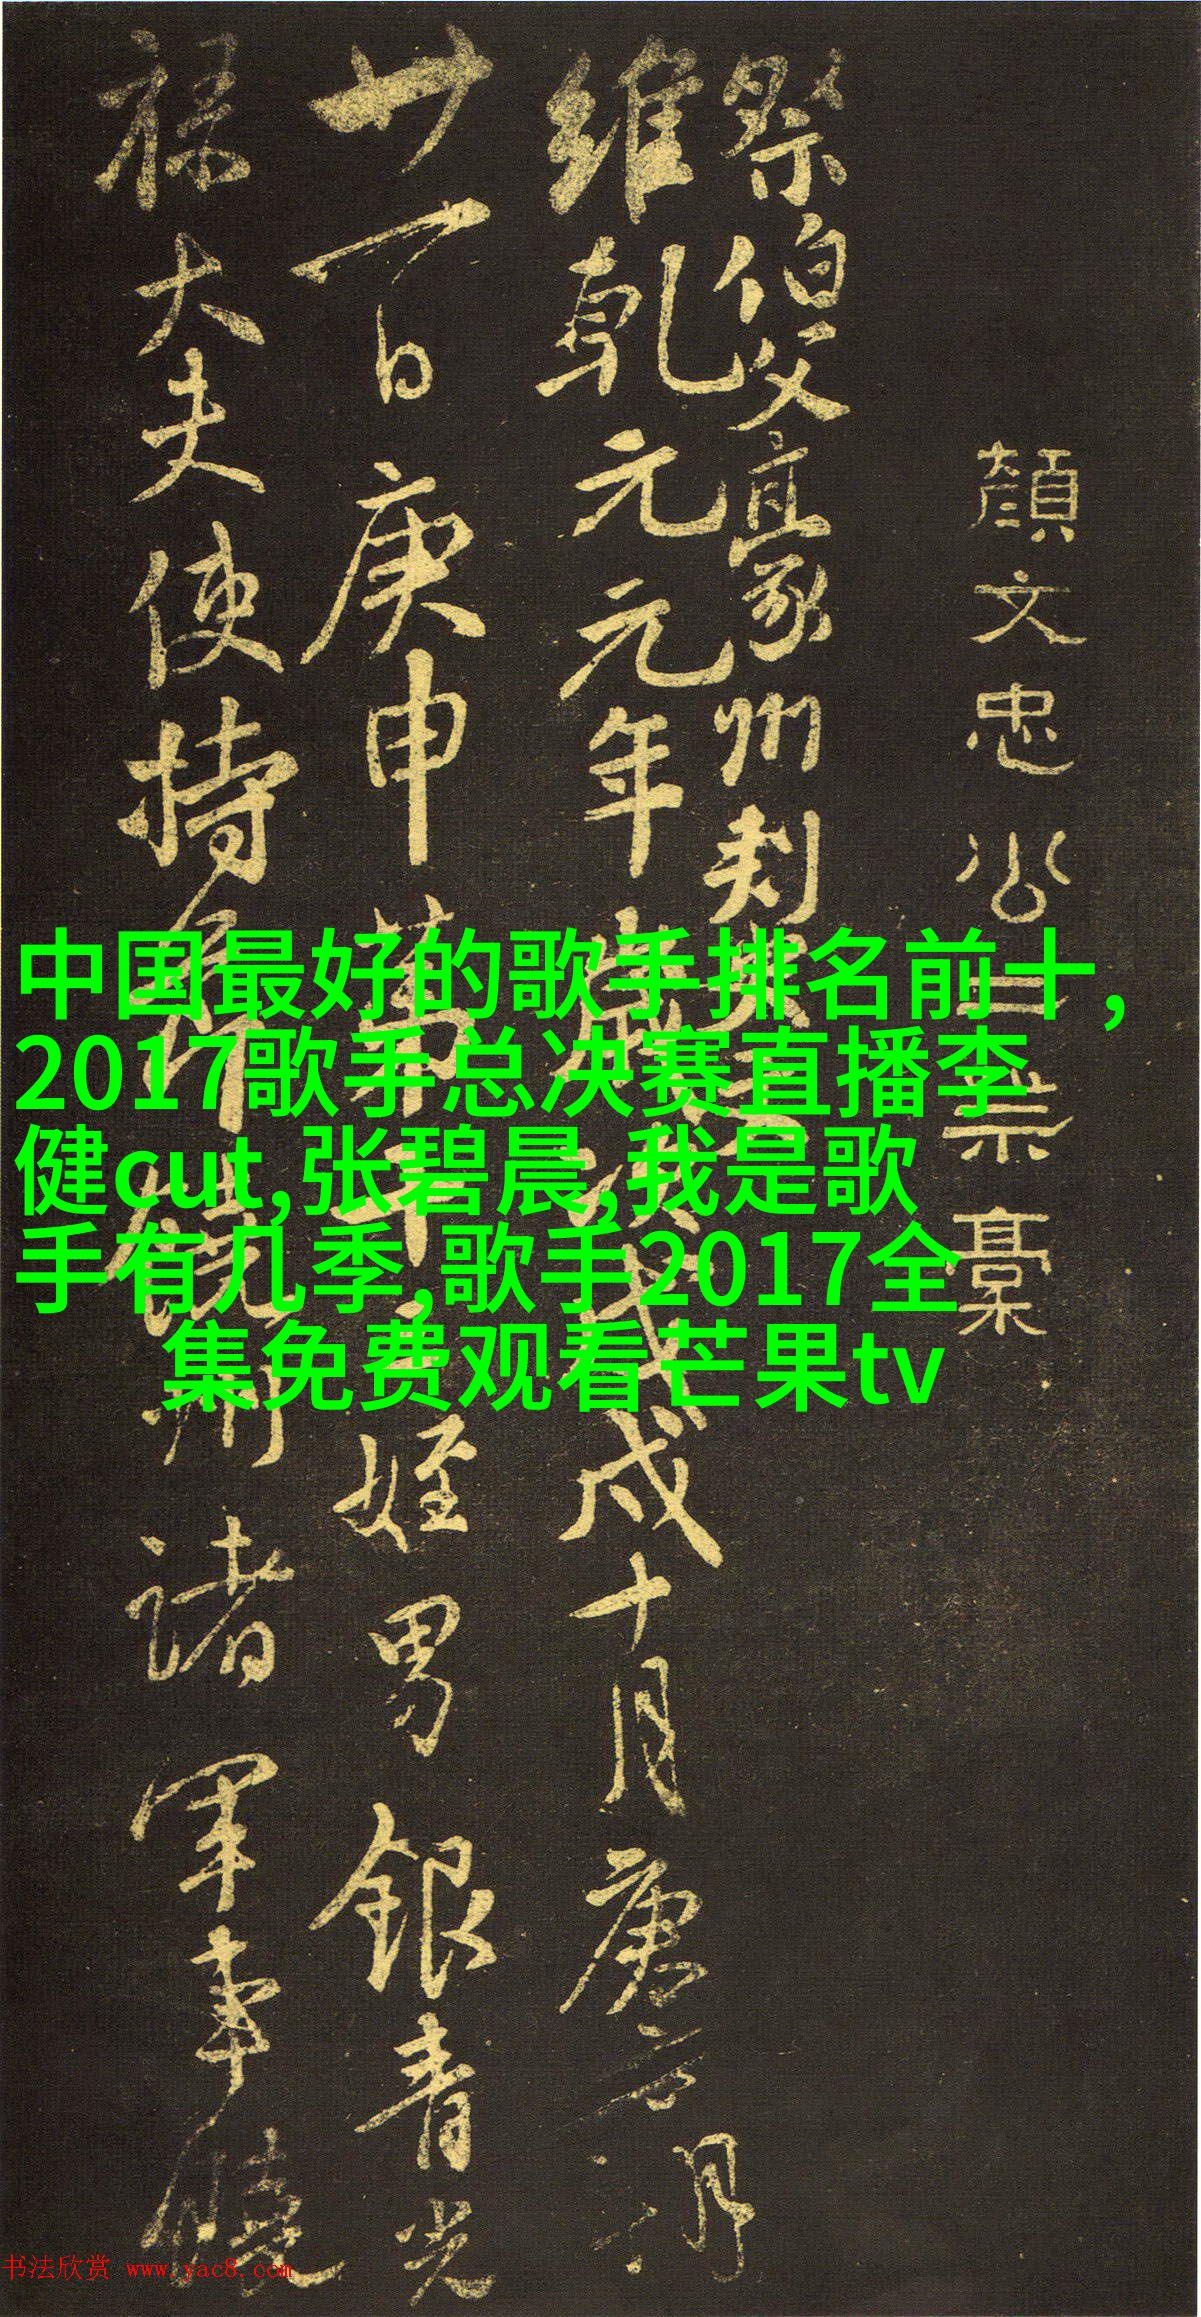 顏文忠公祭槀
祭伯父豪州刺史
維乾元元年歲次戊戌十月庚戌朔
廿一日庚申第十三姪男銀青光
祿大夫使持節饒州諸軍事饒
中国最好的歌手排名前十，
2017歌手总决赛直播李
健cut,张碧晨,我是歌
手有几季,歌手2017全
集免费观看芒果tv
书法欣赏 www.yac8.com